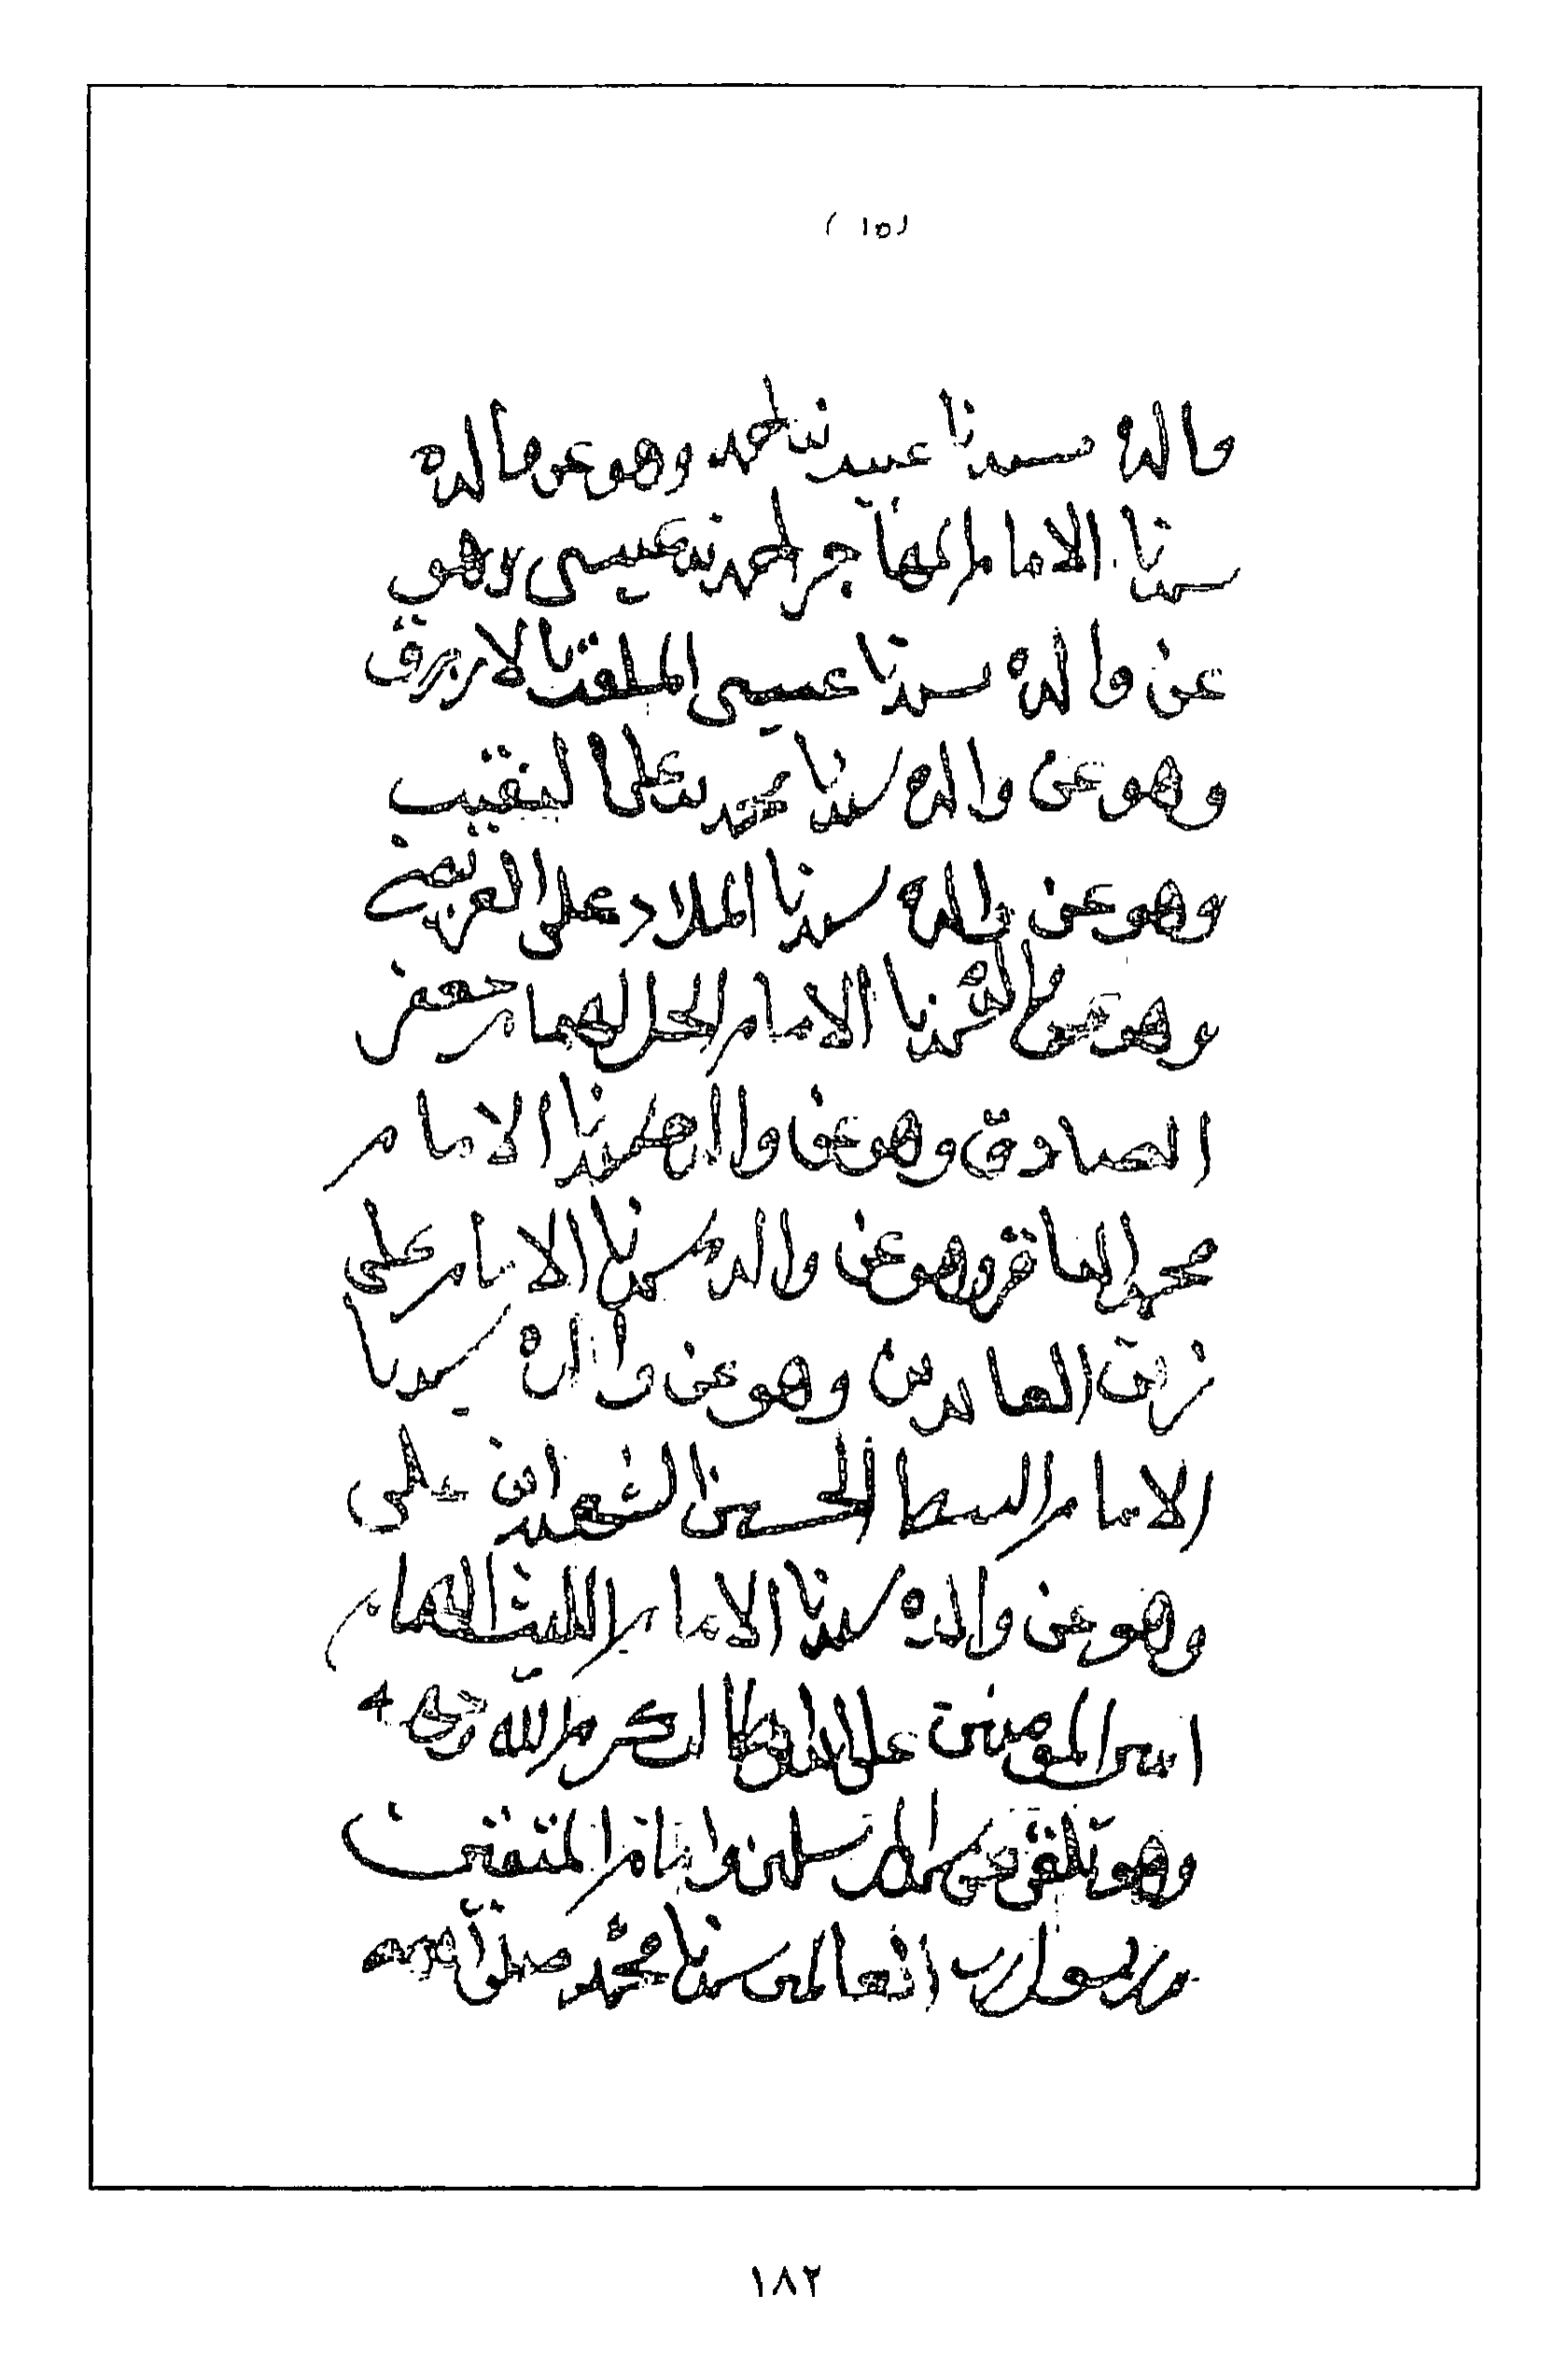 (١٥)
والده سيدنا عبيد بن احمد وهو عن والده
سيدنا الامام المهاجر احمد بن عيسى وهو
عن والده سيدنا عيسى الملقب بالازرق
وهو عن والده سيدنا محمد بن علي النقيب
وهو عن والده سيدنا الملاد علي العريضي
وهو عن والده سيدنا الامام الحل الهمام جعفر
الصادق وهو عن والده سيدنا الامام
محمد الباقر وهو عن والده سيدنا الامام علي
زين العابدين وهو عن والده سيدنا
الامام السبط الحسين الشهيد ابن علي
وهو عن والده سيدنا الامام الليث الهمام
امير المؤمنين علي ابن ابي طالب كرم الله وجهه
وهو تلقى عن المرسلين وامام المتقين
رسول رب العالمين سيدنا محمد صلى الله
١٨٢